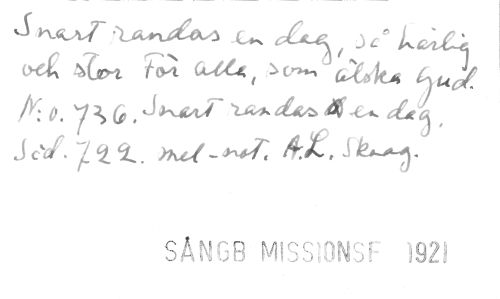 Snart randas en dag, så härlig
och stor För alla, som älska Gud.
N:o. 736. Snart randas en dag.
Sid. 722. mel-not. A.L. Skoog.
SÅNGB MISSIONSF 1921